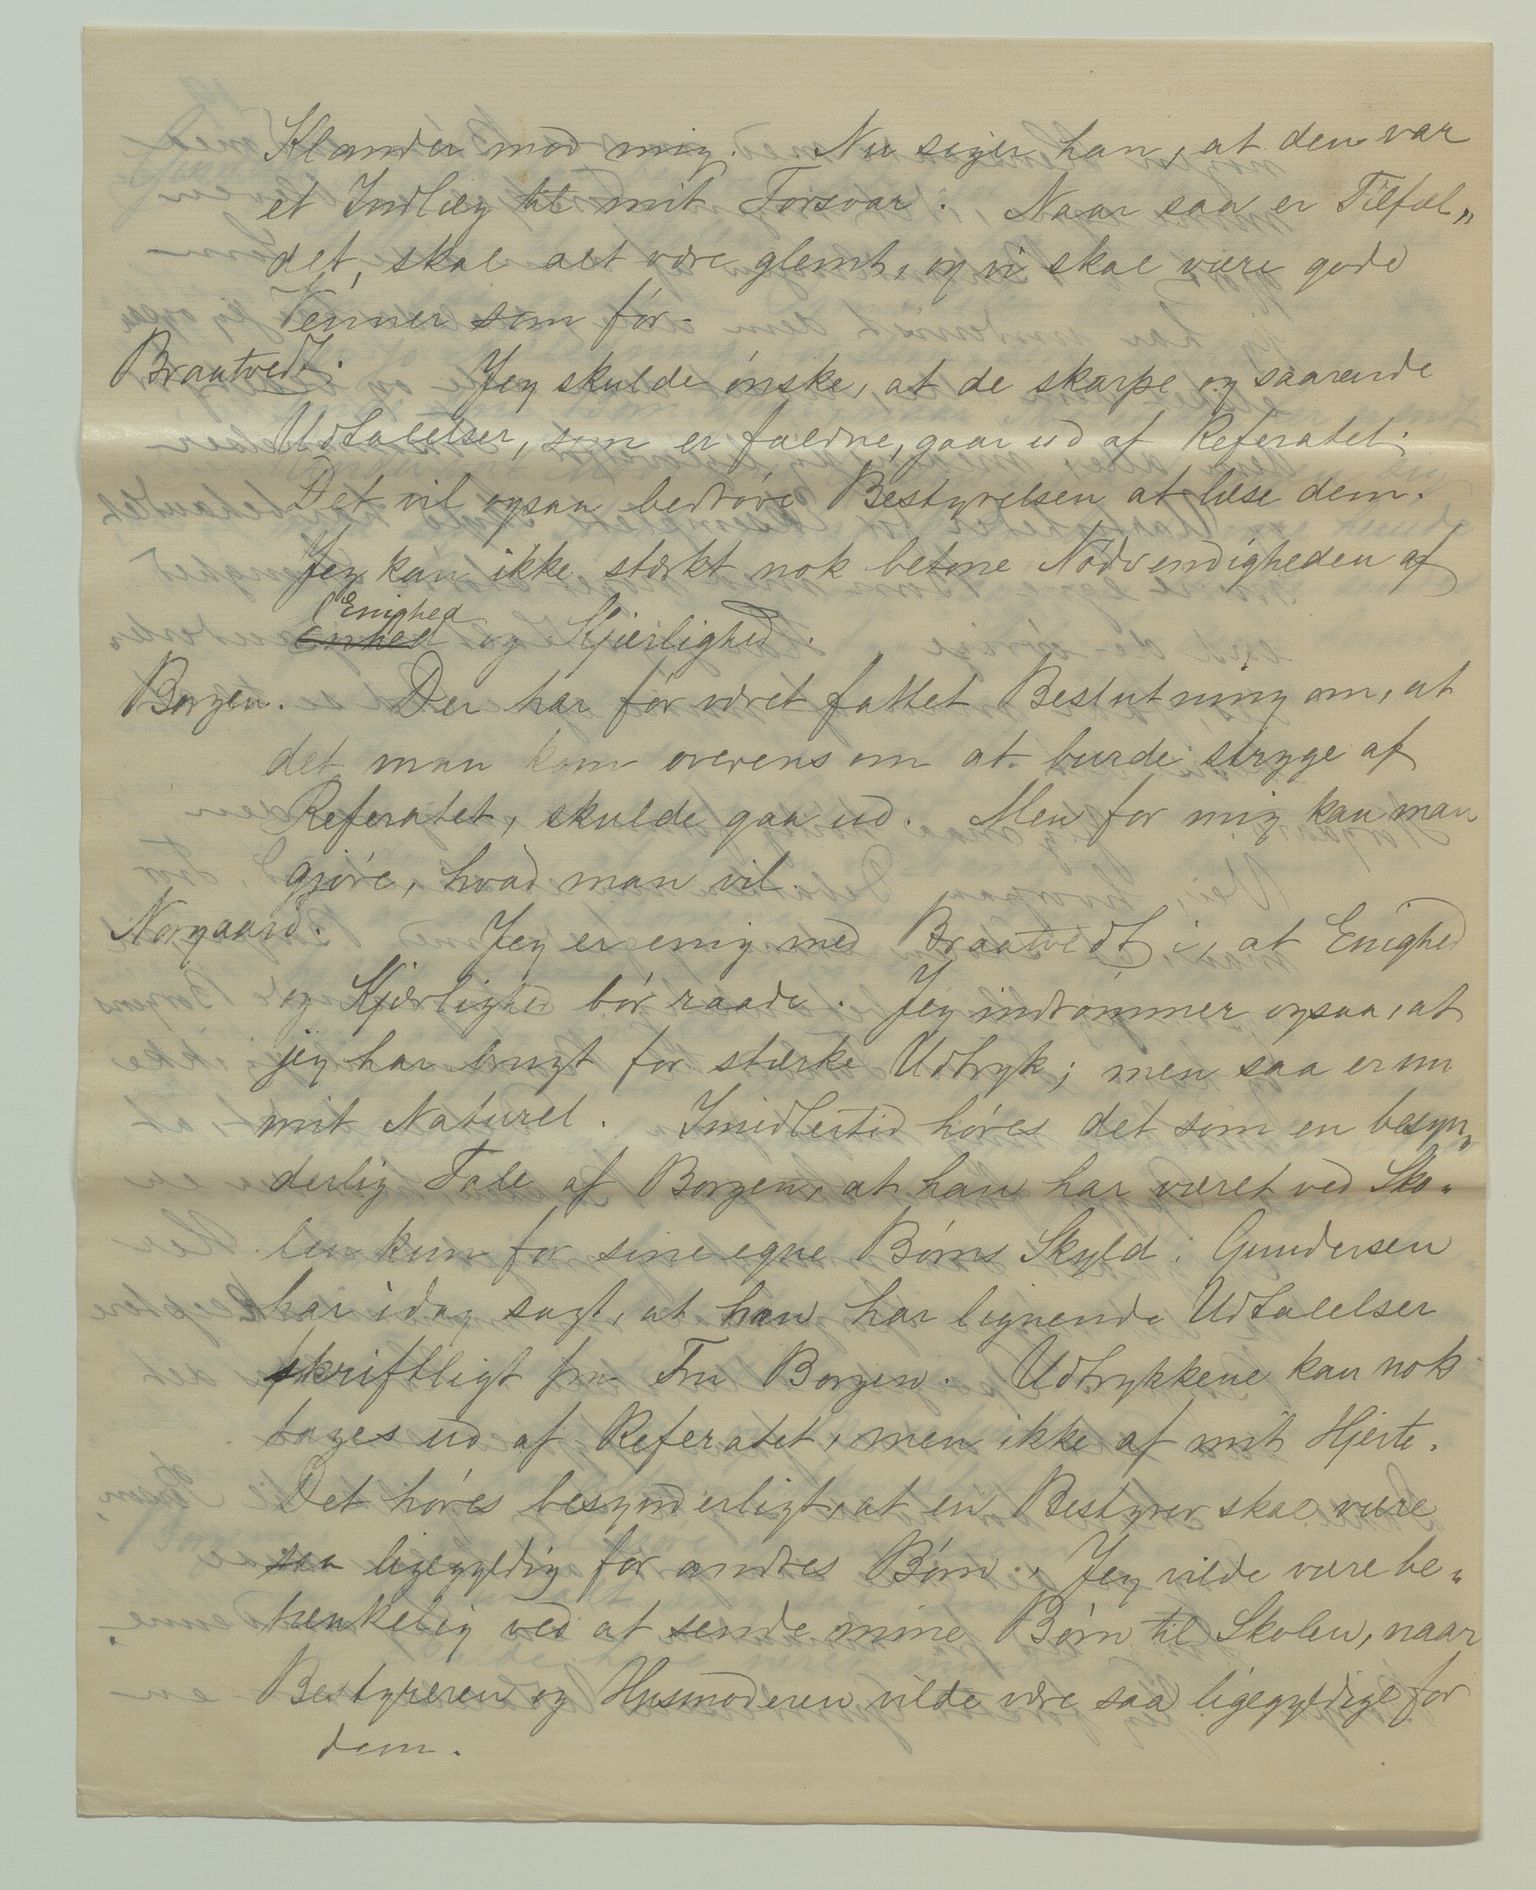 Klander mod mig. Nu siger han, at den var
et Indlæg til mit Forsvar. Naar saa er Tilfæl„
det, skal alt være glemt, og vi skal være gode
Venner som før.
Braatvedt. Jeg skulde ønske, at de skarpe og saarende
Udtalelser, som er faldne, gaar ud af Referatet.
Det vil ogsaa bedrøve Bestyrelsen at læse dem.
Jeg kan ikke stærkt nok betone Nødvendigheden af
Enighed
Enhed og Kjærlighed.
Borgen. Der har før været fattet Beslutning om, at
det man kom overens om at burde stryge af
Referatet, skulde gaa ud. Men for mig kan man
gjøre, hvad man vil.
Norgaard. Jeg er enig med Braatvedt i, at Enighed
og Kjærlighed bør raade. Jeg indrømmer ogsaa, at
jeg har brugt for stærke Udtryk; men saa er nu
mit Naturel. Imidlertid høres det som en besyn„
derlig Tale af Borgen, at han har været ved Sko„
len kun for sine egne Børns Skyld. Gundersen
har idag sagt, at han har lignende Udtalelser
skriftligt fra Fru Borgen. Udtrykkene kan nok
tages ud af Referatet, men ikke af mit Hjerte.
Det høres besynderligt, at en Bestyrer skal være
saa ligegyldig for andres Børn. Jeg vilde være be„
tænkelig ved at sende mine Børn til Skolen, naar
Bestyreren og Husmoderen vilde være saa ligegyldige for
dem.